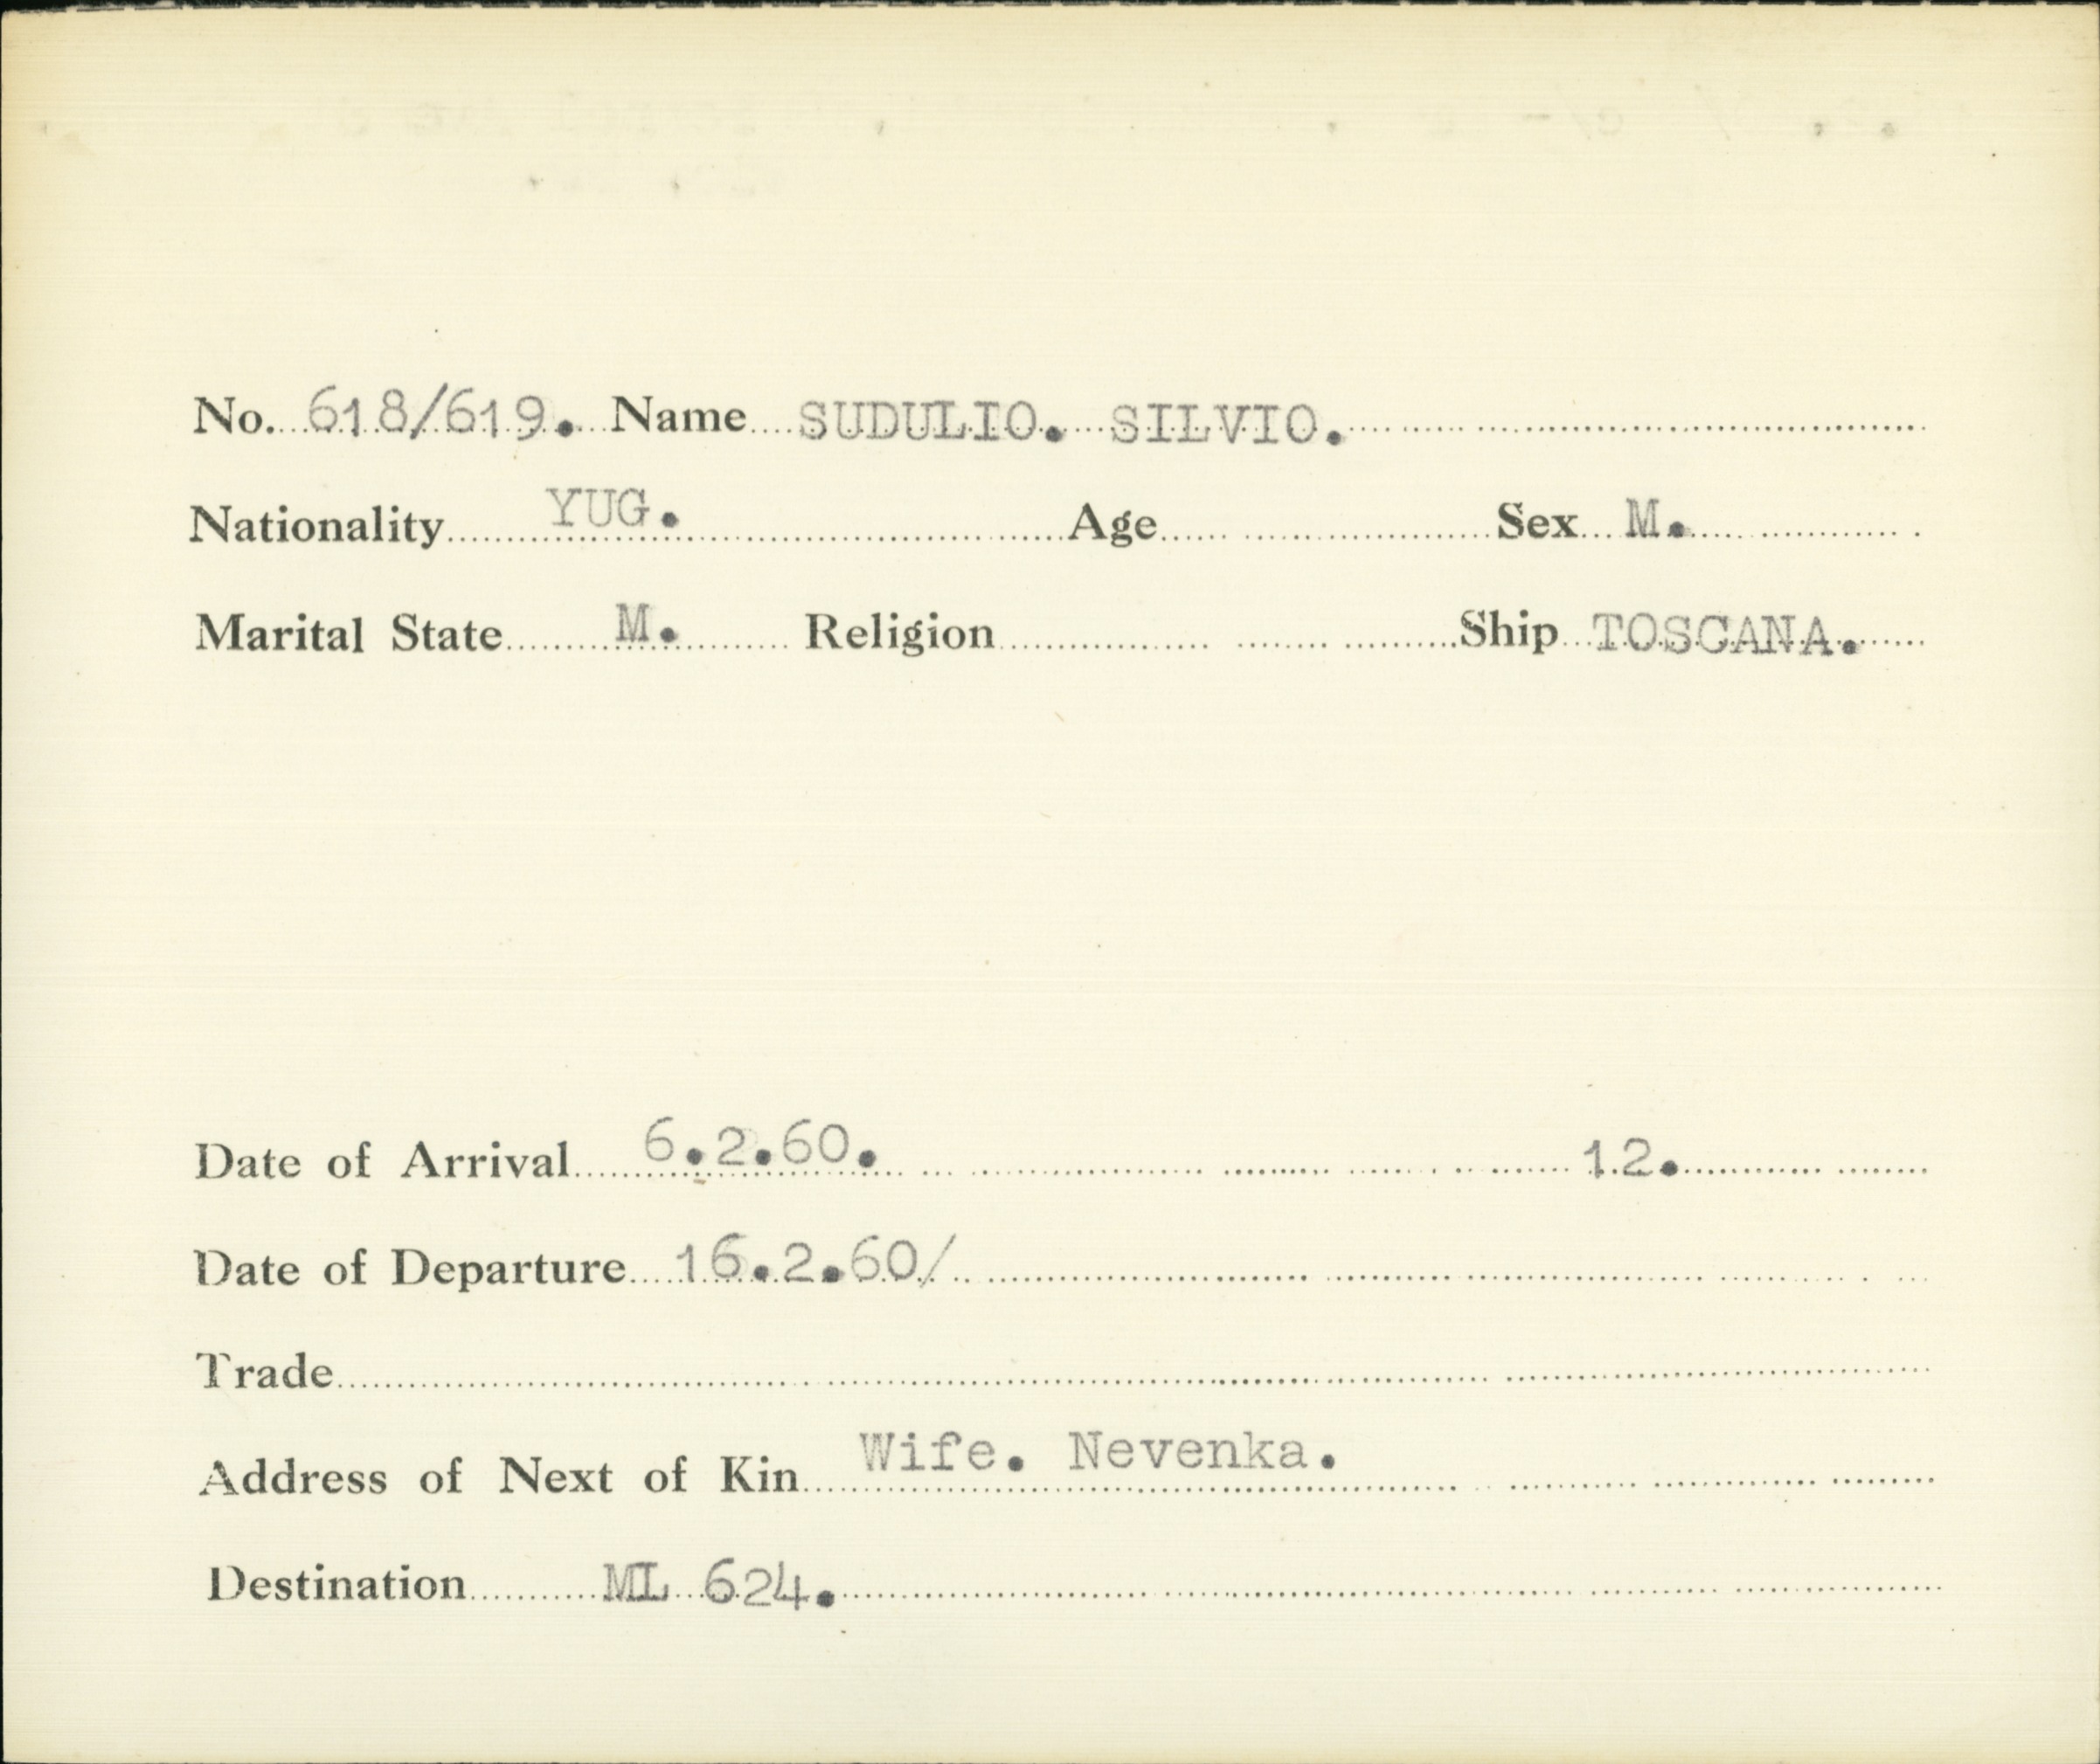 No. 618/619. Name SUDULIO. SILVIO.
Nationality YUG. Age Sex M.
Marital State M. Religion Ship TOSCANA.
Date of Arrival 6.2.60. 12.
Date of Departure 16.2.60/
Trade
Address of Next of Kin Wife. Nevenka.
Destination ML 624.